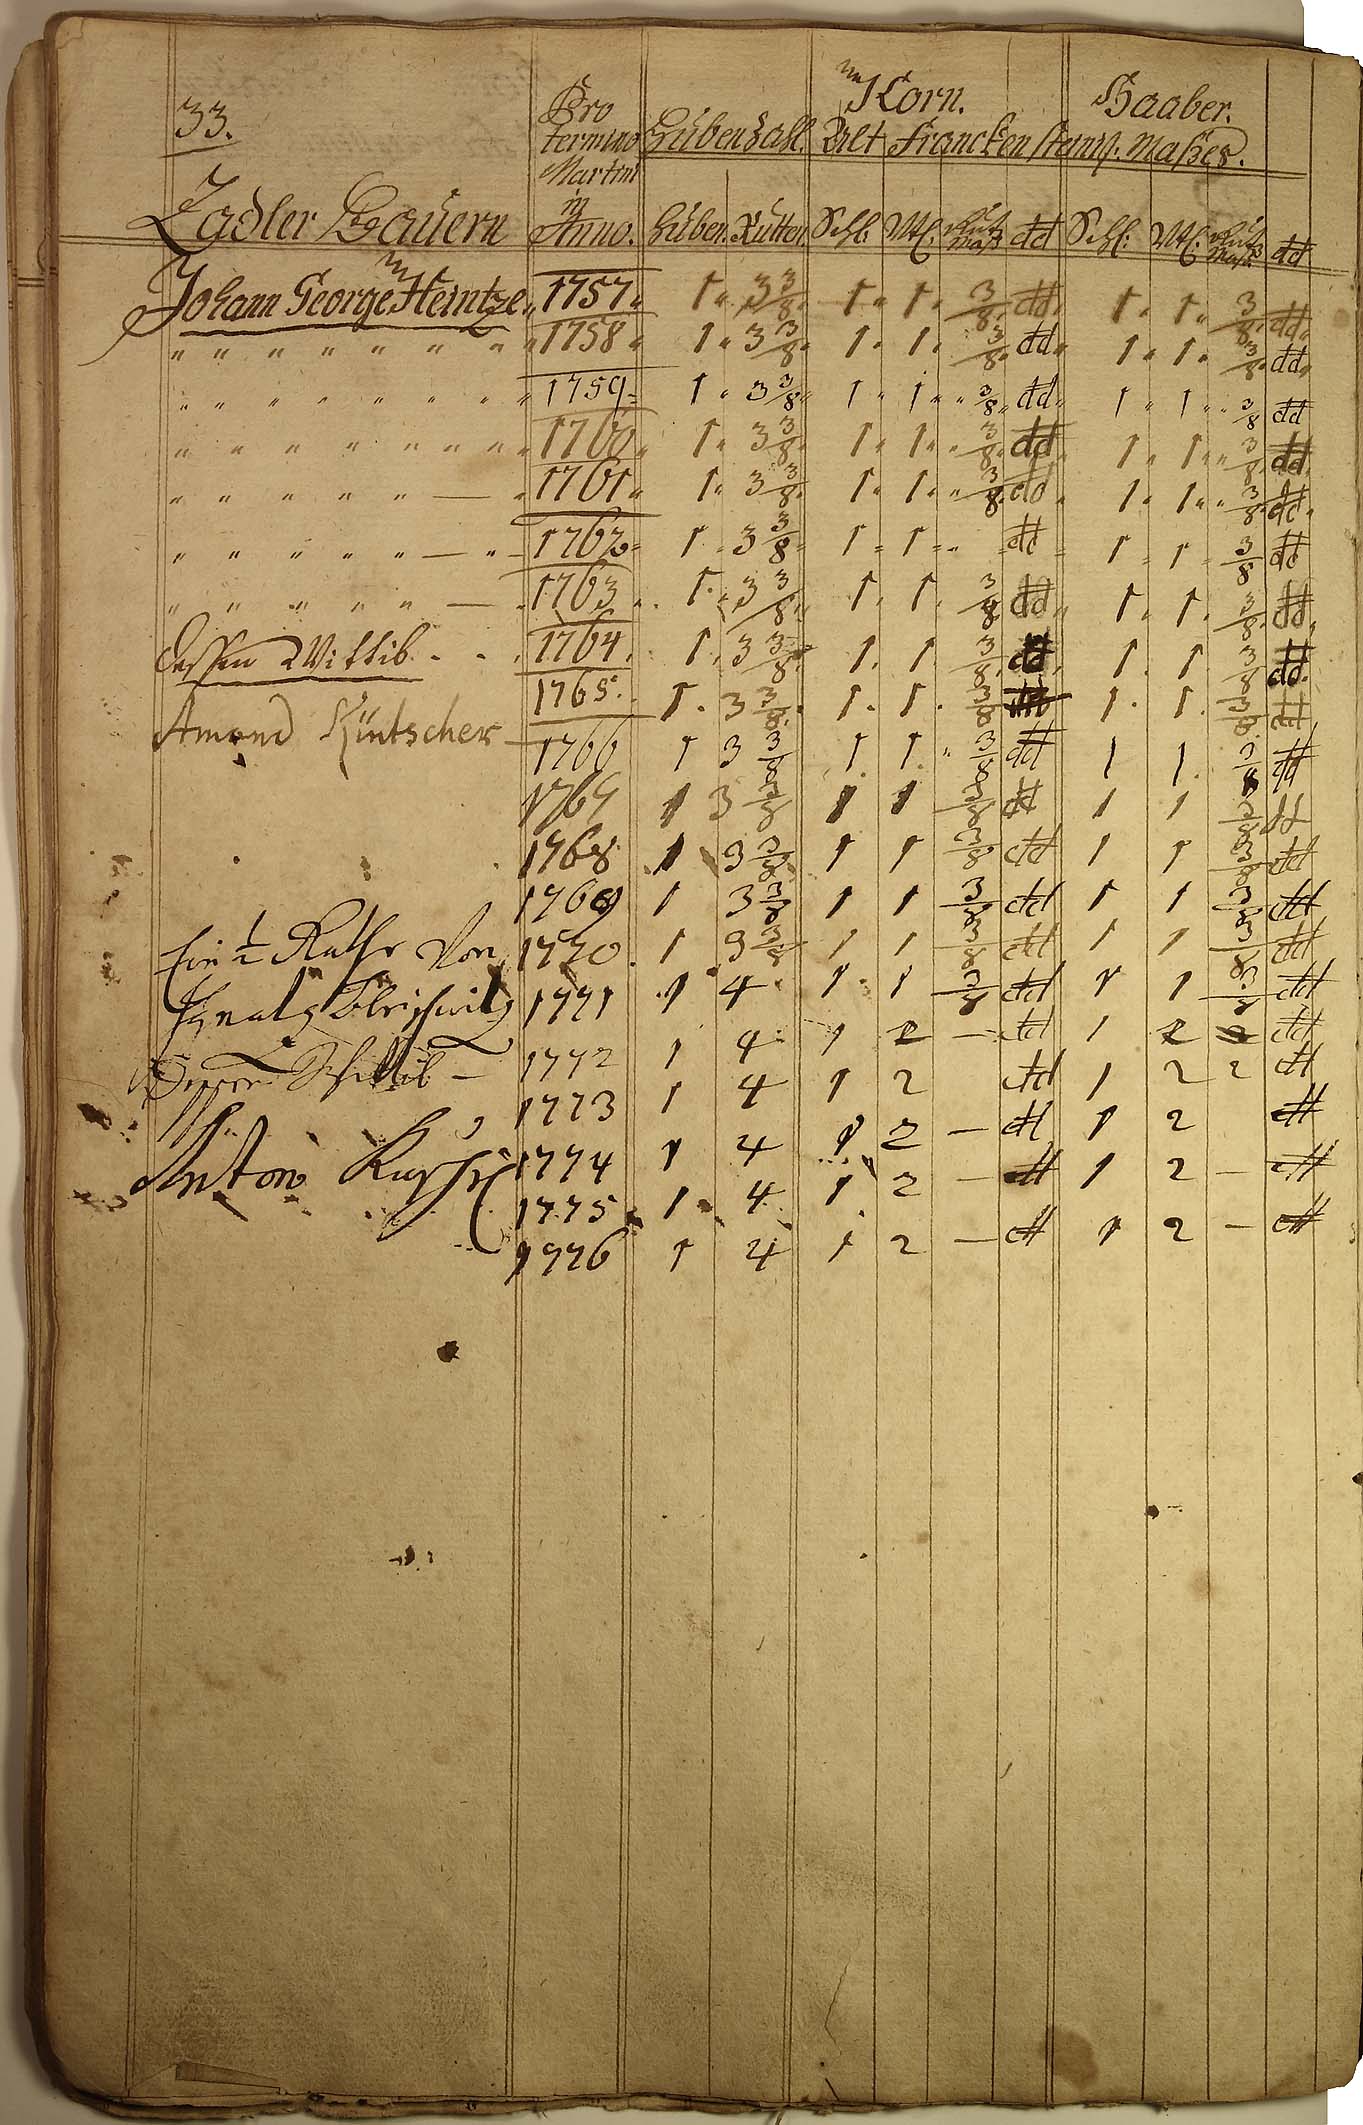 33.
Pro
termino
Martini
in
Anno.
Korn.
Haaber.
Hübenzahl. Alt Franckensteinis. Maßes.
Zadler Bauern
Huben. Rutten. Schl. Vtl. Maß dd Schl. Vtl. Maß dd
Johann George Heintze 1757 1 3 3/8 1 1 3/8 dd 1 1 3/8 dd
" " " " " " " " 1758 1 3 3/8 1 1 3/8 dd 1 1 3/8 dd
" " " " " " " " 1759 1 3 3/8 1 1 3/8 dd 1 1 3/8 dd
" " " " " " " " 1760 1 3 3/8 1 1 3/8 dd 1 1 3/8 dd
" " " " " — " 1761 1 3 3/8 1 1 3/8 dd 1 1 3/8 dd
" " " " " — " 1762 1 3 3/8 1 1 " dd 1 1 3/8 dd
" " " " " — " 1763 1 3 3/8 1 1 3/8 dd 1 1 3/8 dd
dessen Wittib 1764 1 3 3/8 1 1 3/8 dd 1 1 3/8 dd
1765 1 3 3/8 1 1 3/8 dd 1 1 3/8 dd
Amand Küntscher — 1766 1 3 3/8 1 1 3/8 dd 1 1 3/8 dd
1767 1 3 3/8 1 1 3/8 dd 1 1 3/8 dd
1768 1 3 3/8 1 1 3/8 dd 1 1 3/8 dd
1769 1 3 3/8 1 1 3/8 dd 1 1 3/8 dd
Ein 1/2 Ruthe von 1770 1 3 3/8 1 1 3/8 dd 1 1 3/8 dd
Ignatz 1771 1 4 1 1 3/8 dd 1 1 3/8 dd
1772 1 4 1 2 — dd 1 2 dd
1773 1 4 1 2 dd 1 2 2 dd
Anton 1774 1 4 1 2 — dd 1 2 dd
1775 1 4 1 2 — dd 1 2 — dd
1776 1 4 1 2 — dd 1 2 — dd